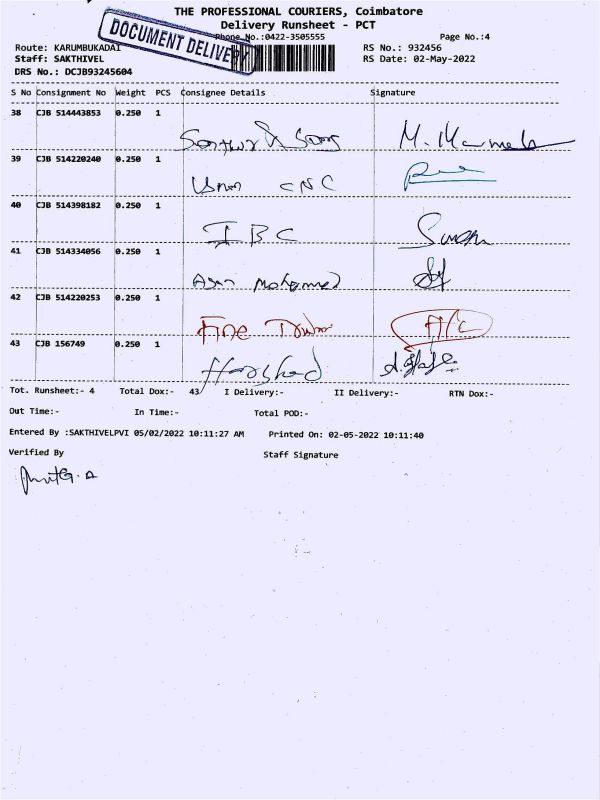 THE PROFESSIONAL COURIERS, Coimbatore
Delivery Runsheet - PCT
DOCUMENT DELIVERY
Phone No.:0422-3505555 Page No.:4
Route: KARUMBUKADAI RS No.: 932456
Staff: SAKTHIVEL RS Date: 02-May-2022
DRS No.: DCJB93245604
S No Consignment No Weight PCS Consignee Details Signature
38 CJB 514443853 0.250 1
39 CJB 514220240 0.250 1
CNC
40 CJB 514398182 0.250 1
IBC
41 CJB 514334056 0.250 1
42 CJB 514220253 0.250 1
Fine
43 CJB 156749 0.250 1
Harshad
Tot. Runsheet:- 4 Total Dox:- 43 I Delivery:- II Delivery:- RTN Dox:-
Out Time:- In Time:- Total POD:-
Entered By :SAKTHIVELPVI 05/02/2022 10:11:27 AM Printed On: 02-05-2022 10:11:40
Verified By Staff Signature